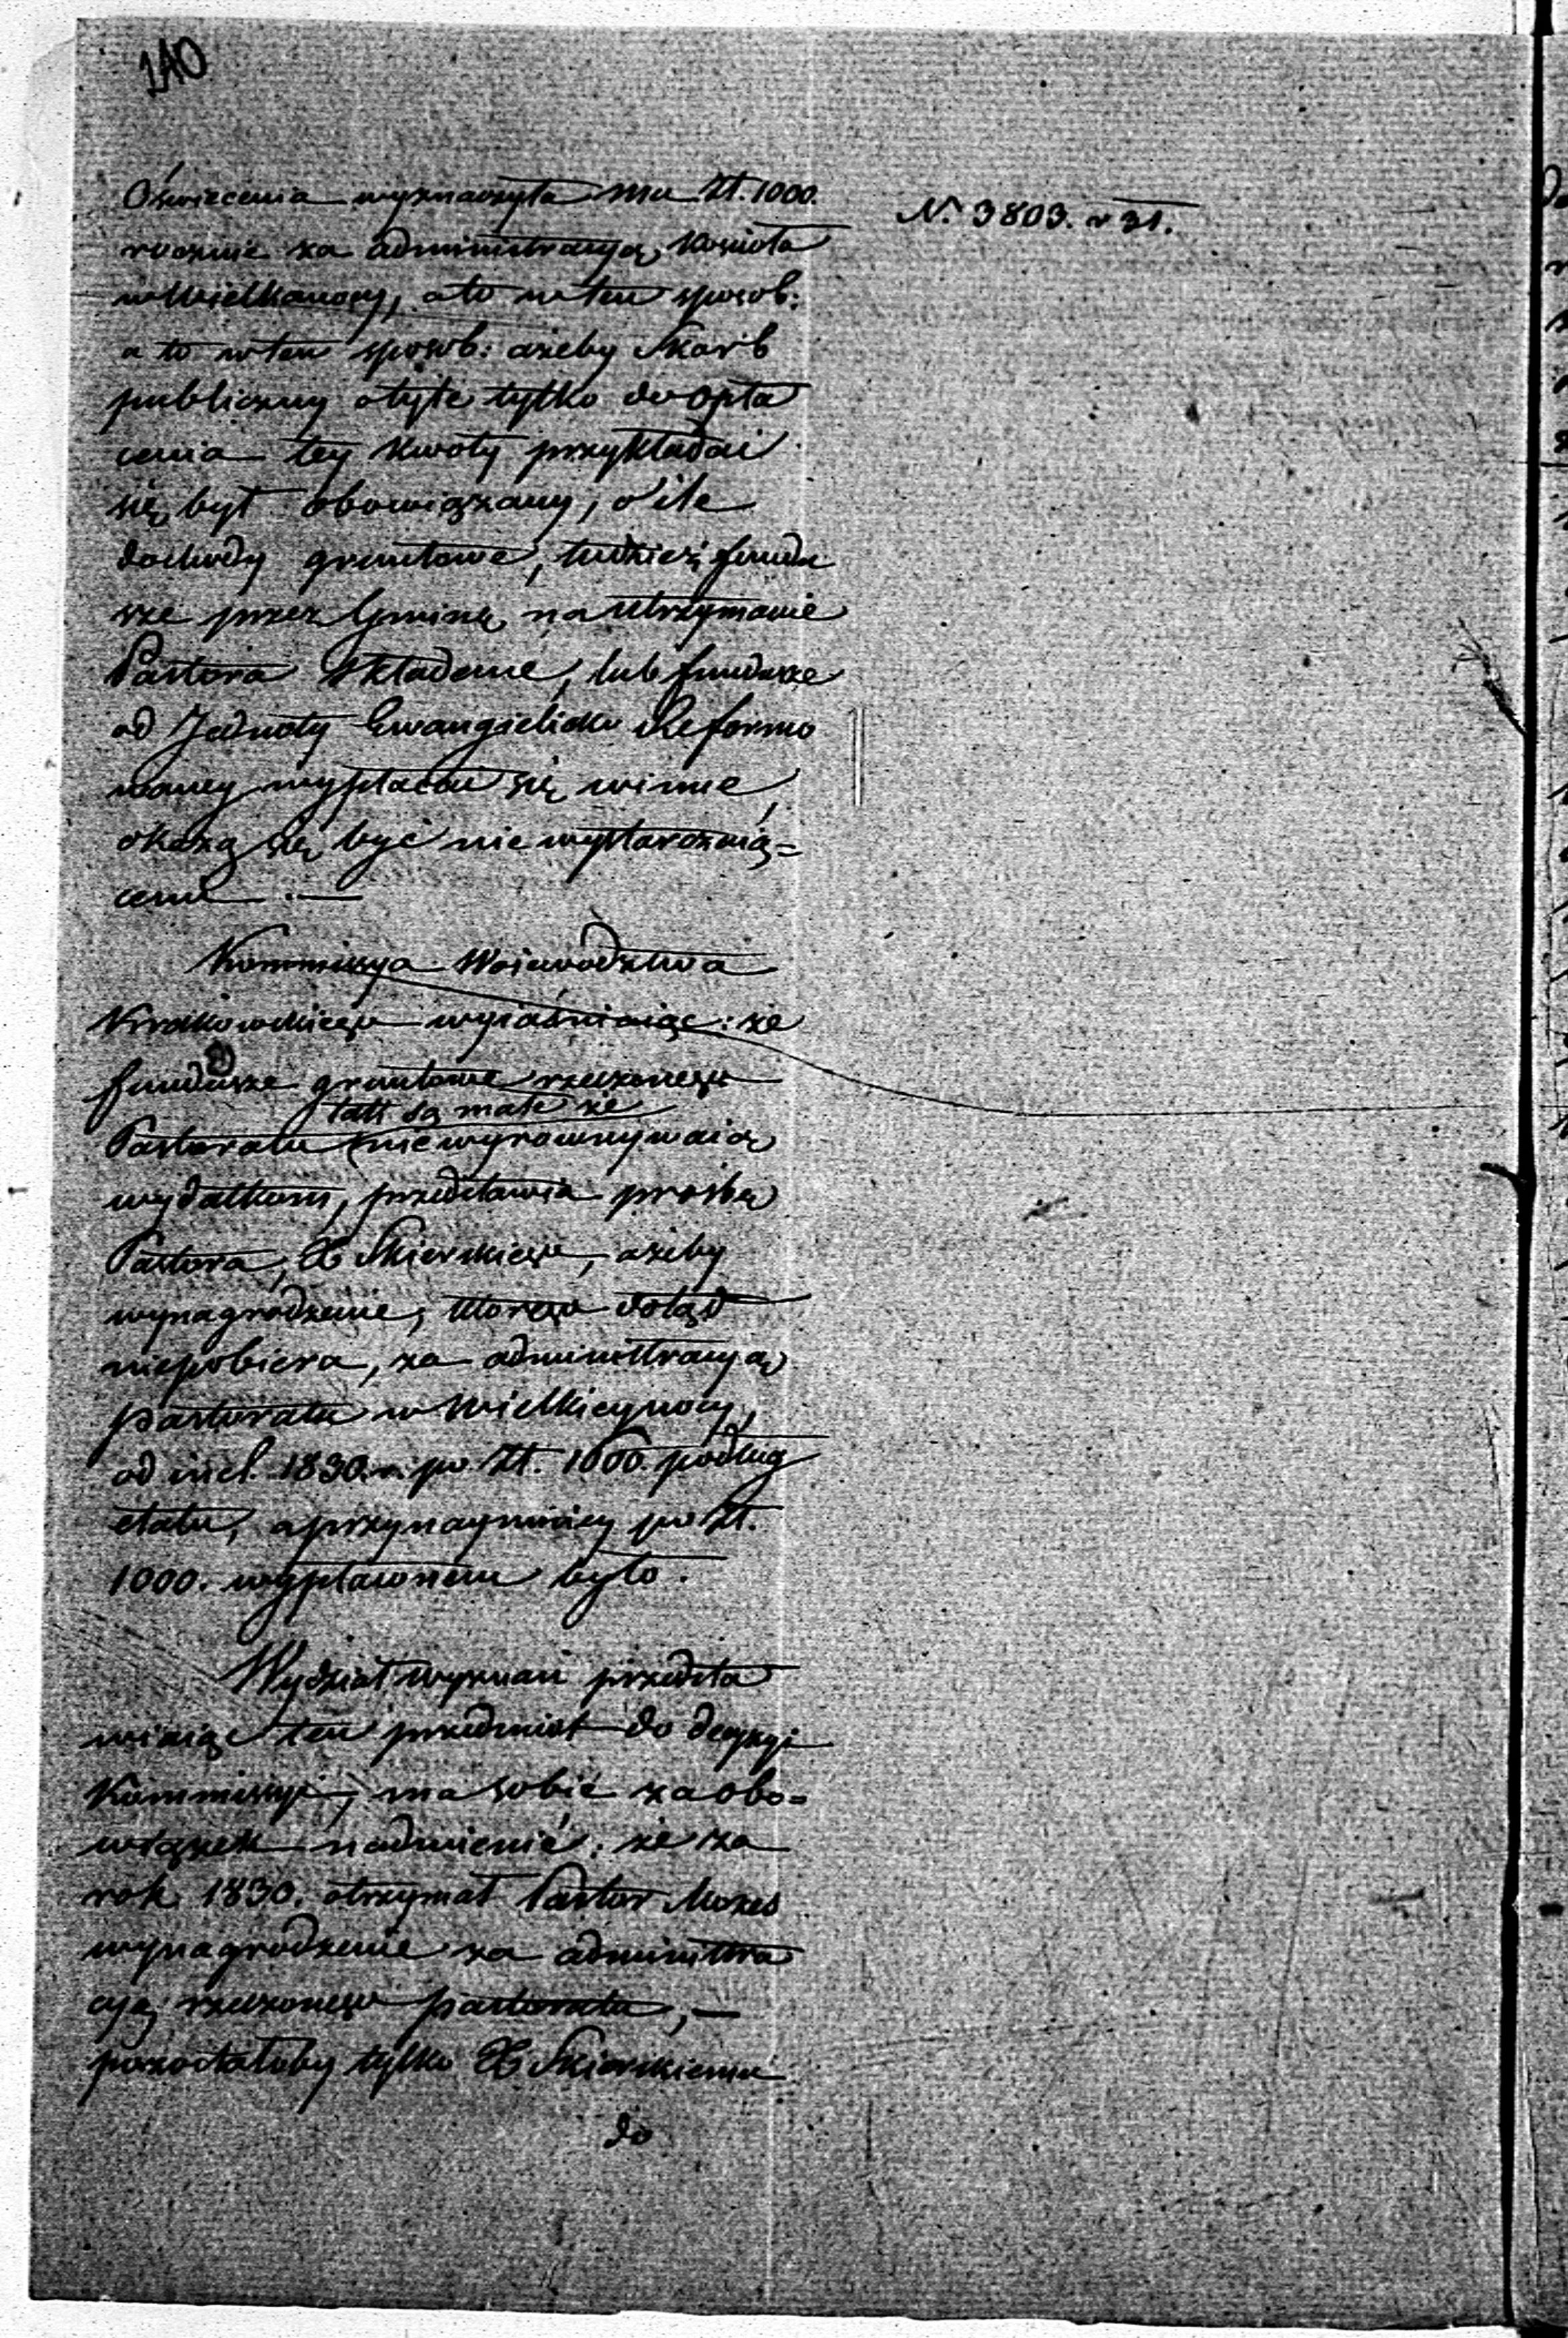 140
Oświecenia wyznaczyła mu Zł. 1000.
N. 3803. r 31.
rocznie za administracyą Kościoła
w Wielkanocy, a to w ten sposob:
a to w ten sposób: ażeby Skarb
publiczny otyle tylko do opła
cenia tey kwoty przykładać
się był obowiązany, o ile
dochody gruntowe, tudzież fundu
sze przez Gminę na utrzymanie
Pastora składane, lub fundusze
od Jednoty Ewangielicko Reformo
waney wypłacać się winne,
okażą się być nie wystarczaią=
cemi. —
Kommissya Woiewodztwa
Krakowskiego wyiaśniaiąc: że
fundusze gruntowe rzeczonego
tak są małe że
Pastoratu niewyrownywaią
wydatkom, przedstawia prośbę
Pastora, X Skierskiego, ażeby
wynagrodzenie, którego dotąd
niepobiera, za administracyą
pastoratu w Wielkieynocy,
od incl. 1830. r. po Zł. 1600. podług
etatu, a przynaymniey po Zł.
1000. wypłaconem było.
Wydział wyznań przedsta
wiaiąc ten przedmiot do decyzyi
Kommissyi, ma sobie za obo=
wiązek nadmienić: że za
rok 1830. otrzymał Pastor Mozes
wynagrodzenie za administra
cyą rzeczonego pastoratu, —
pozostałoby tylko X Skierskiemu
do